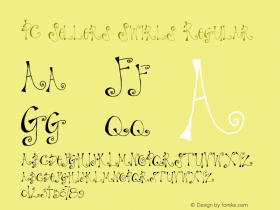 4C Sellers Swirls Regular
Aa Ff A
Gg Qq
ABCDEFGHIJKLMNOPQRSTUVWXYZ
ABCDEFGHIJKLMNOPQRSTUVWXYZ
0123456789
© Design by fontke.com